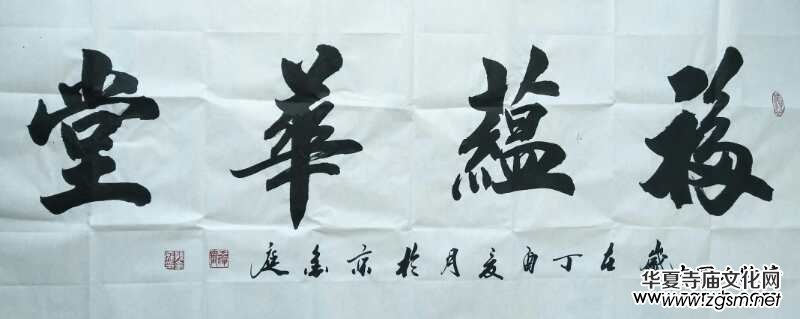 福蘊華堂
歲在丁酉夏月於京
华夏寺庙文化网
www.zgsm.net